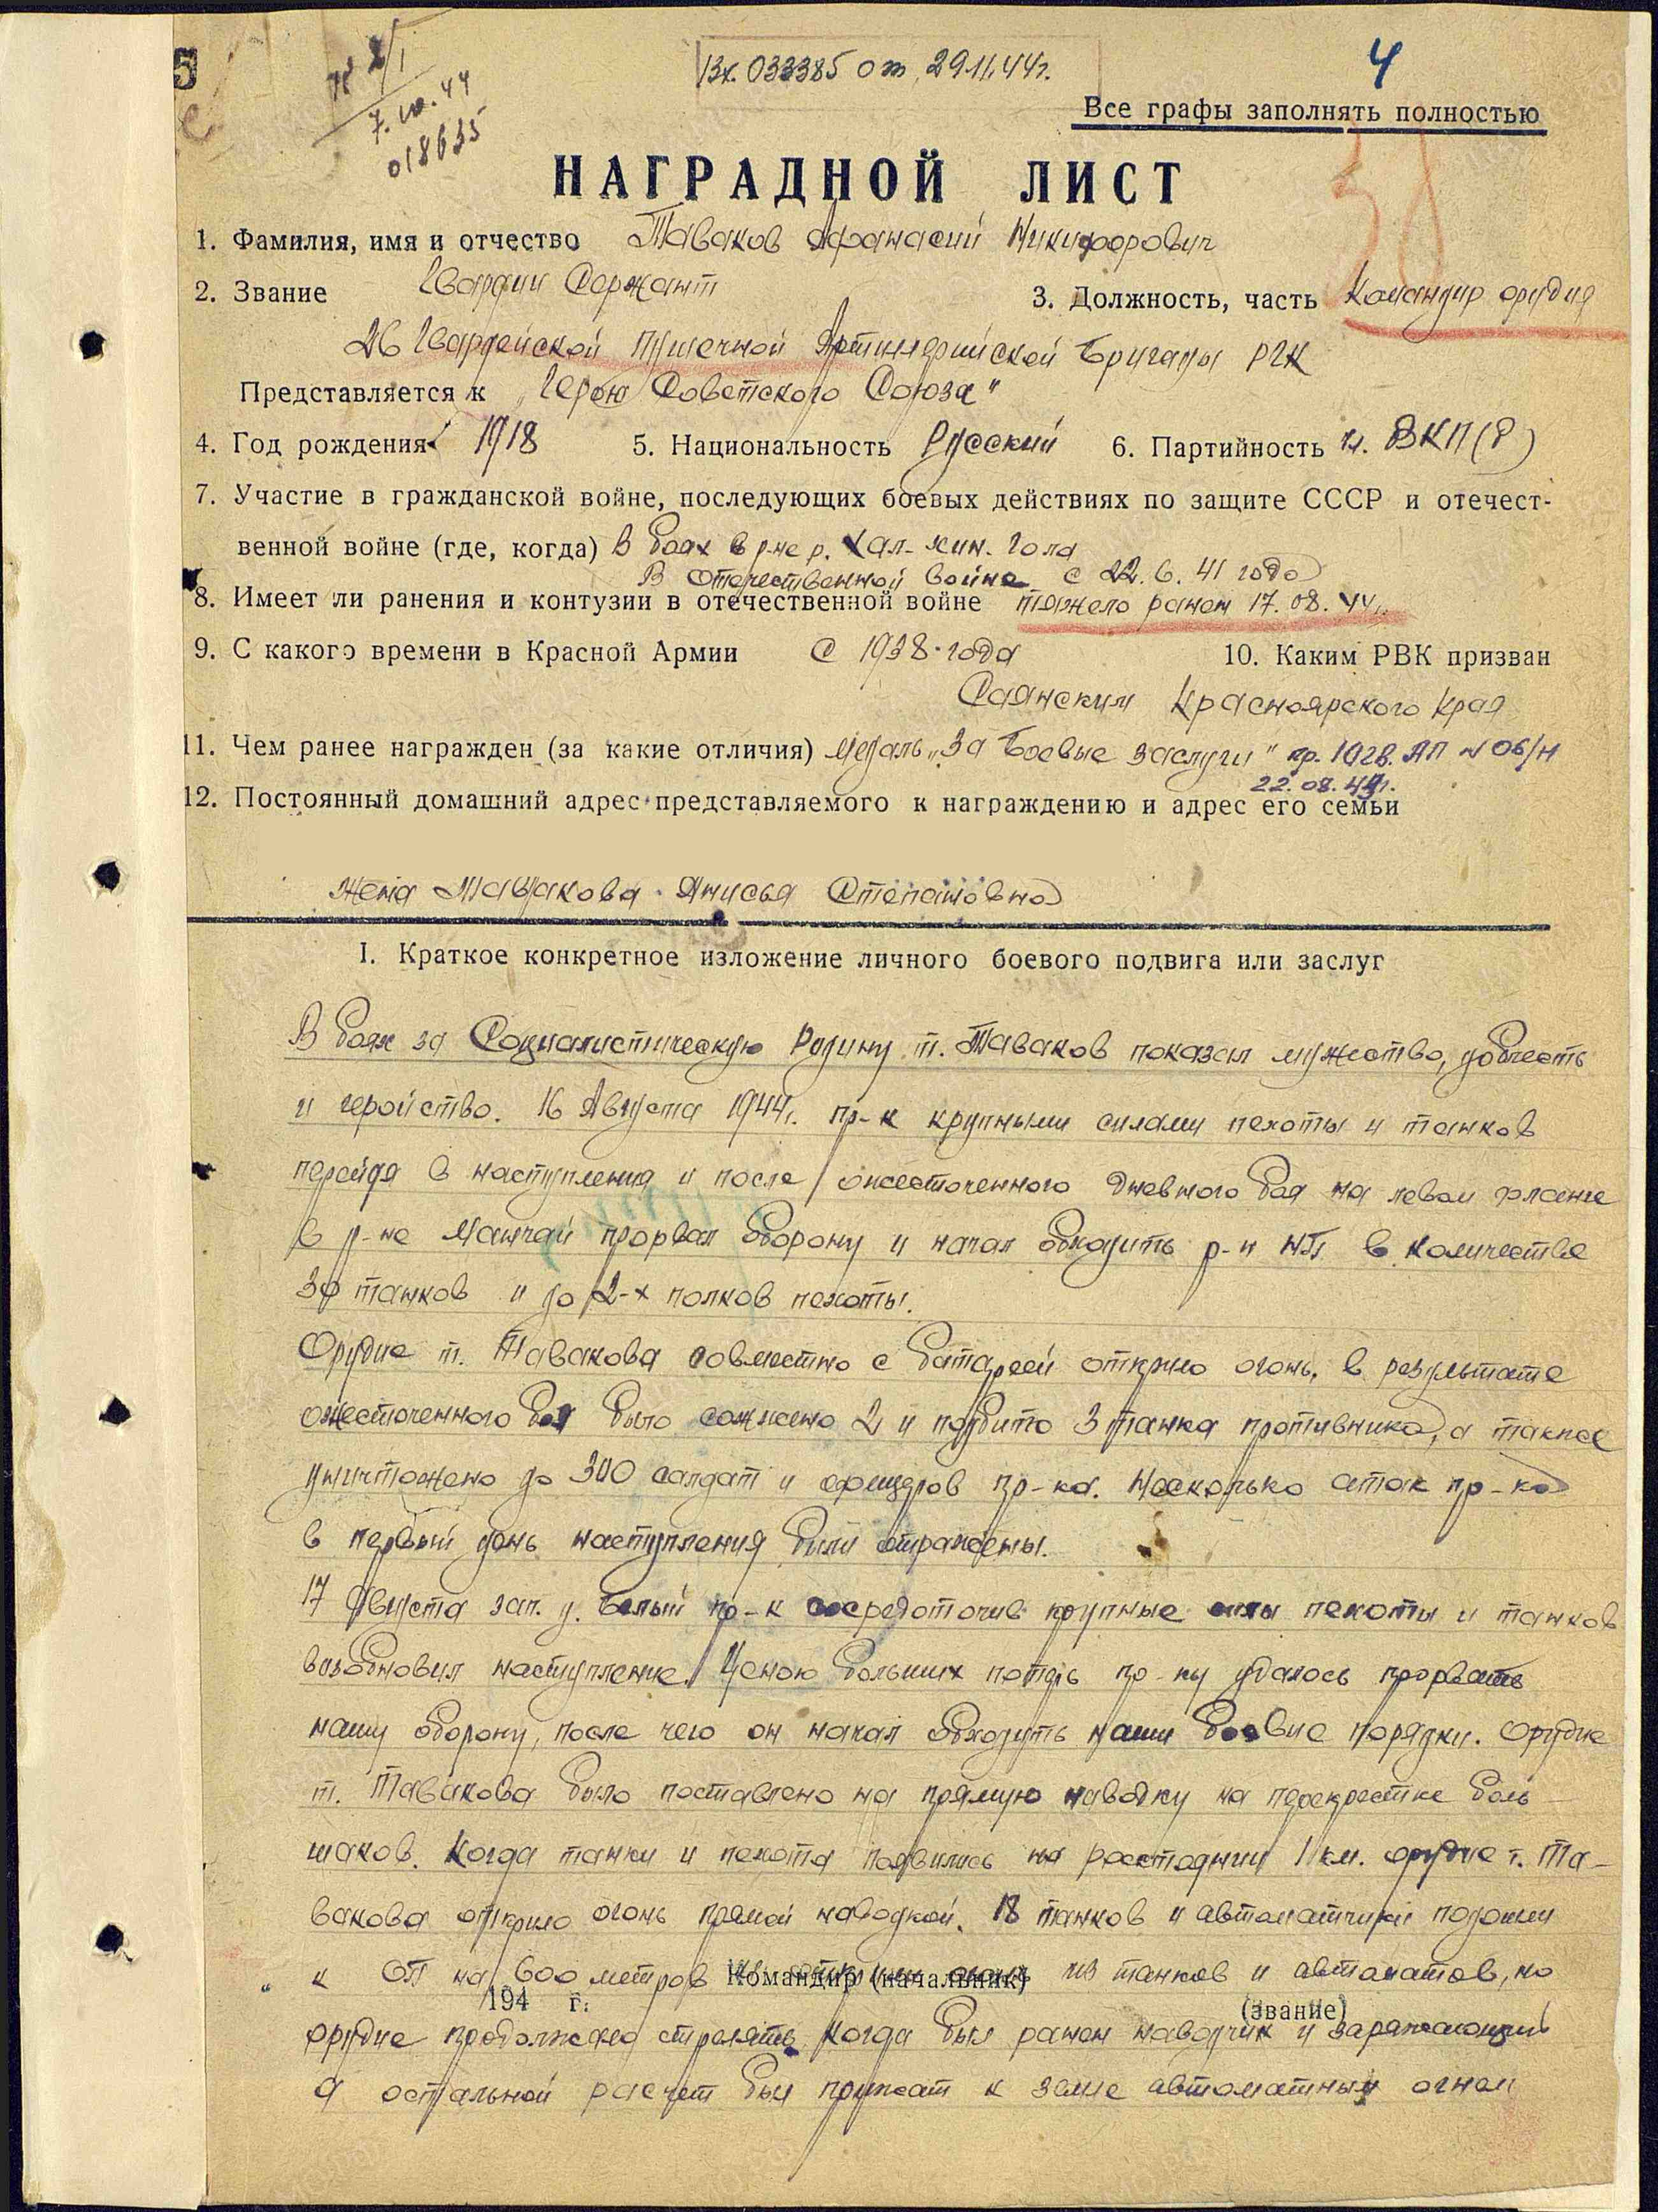 5
7.10.44
018635
Вх. 033385 от 29.11.44г.
4
Все графы заполнять полностью
38
НАГРАДНОЙ ЛИСТ
1. Фамилия, имя и отчество Таваков Афанасий Никифорович
2. Звание Гвардии Сержант 3. Должность, часть Командир орудия
26 Гвардейской Пушечной Артиллерийской Бригады РГК
Представляется к „Герою Советского Союза"
4. Год рождения 1918 5. Национальность Русский 6. Партийность ВКП(б)
7. Участие в гражданской войне, последующих боевых действиях по защите СССР и отечест-
венной войне (где, когда) В боях в р-не р. Хал-хин. Гола
В отечественной войне с 22.6.41 года
8. Имеет ли ранения и контузии в отечественной войне тяжело ранен 17.08.44г.
9. С какого времени в Красной Армии С 1938 года 10. Каким РВК призван
Саянским Красноярского Края
11. Чем ранее награжден (за какие отличия) Медаль „За Боевые заслуги" пр. АП № 06/н
22.08.43г.
12. Постоянный домашний адрес представляемого к награждению и адрес его семьи
жена Тавакова Анисья Степановна
I. Краткое конкретное изложение личного боевого подвига или заслуг
В боях за Социалистическую Родину т. Таваков показал мужество, доблесть
и геройство. 16 Августа 1944г. пр-к крупными силами пехоты и танков
перейдя в наступления и после ожесточенного дневного боя на левом фланге
в р-не прорвал оборону и начал обходить р-н НП в количестве
30 танков и до 2-х полков пехоты.
Орудие т. Тавакова совместно с батареей открыло огонь. в результате
ожесточенного боя было сожжено 2 и подбито 3 танка противника, а также
уничтожено до 300 солдат и офицеров пр-ка. Несколько атак пр-ка
в первый день наступления были отражены.
17 Августа зап. д. Белый пр-к сосредоточив крупные силы пехоты и танков
возобновил наступление. Ценою больших потерь пр-ку удалось прорвать
нашу оборону, после чего он начал обходить наши боевые порядки. Орудие
т. Тавакова было поставлено на прямую наводку на перекрестке боль-
шаков. Когда танки и пехота появились на расстоянии 1 км. орудие т. Та-
вакова открыло огонь прямой наводкой. 18 танков и автоматчики подошли
к ОП на 600 метров Командир (начальник) из танков и автоматов, но
194 г. (звание)
орудие продолжало стрелять. Когда был ранен наводчик и заряжающий
а остальной расчет был прижат к земле автоматным огнем